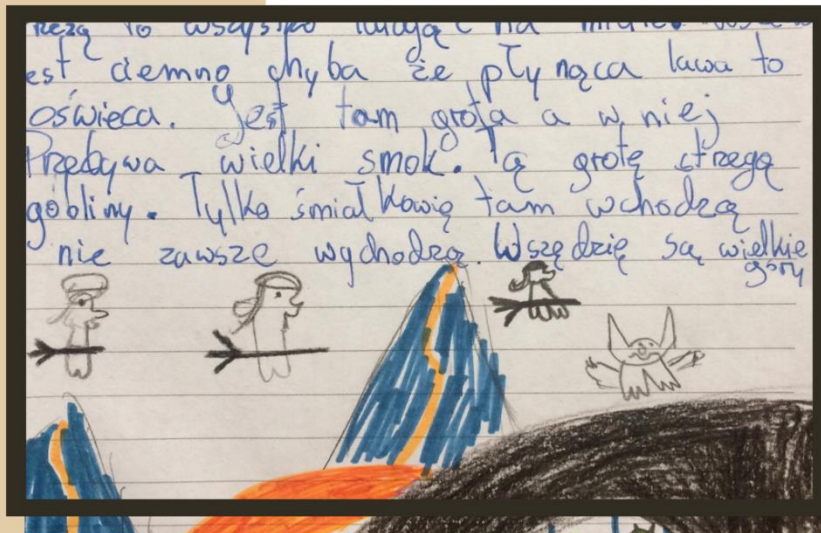 to wszystko
est ciemno chyba że płynąca lawa to
oświeca. Jest tam grota a w niej
Przebywa wielki smok. Tą grotę strzegą
gobliny. Tylko śmiałkowię tam wchodzą
nie zawsze wychodzą. Wszędzię są wielkie
góry